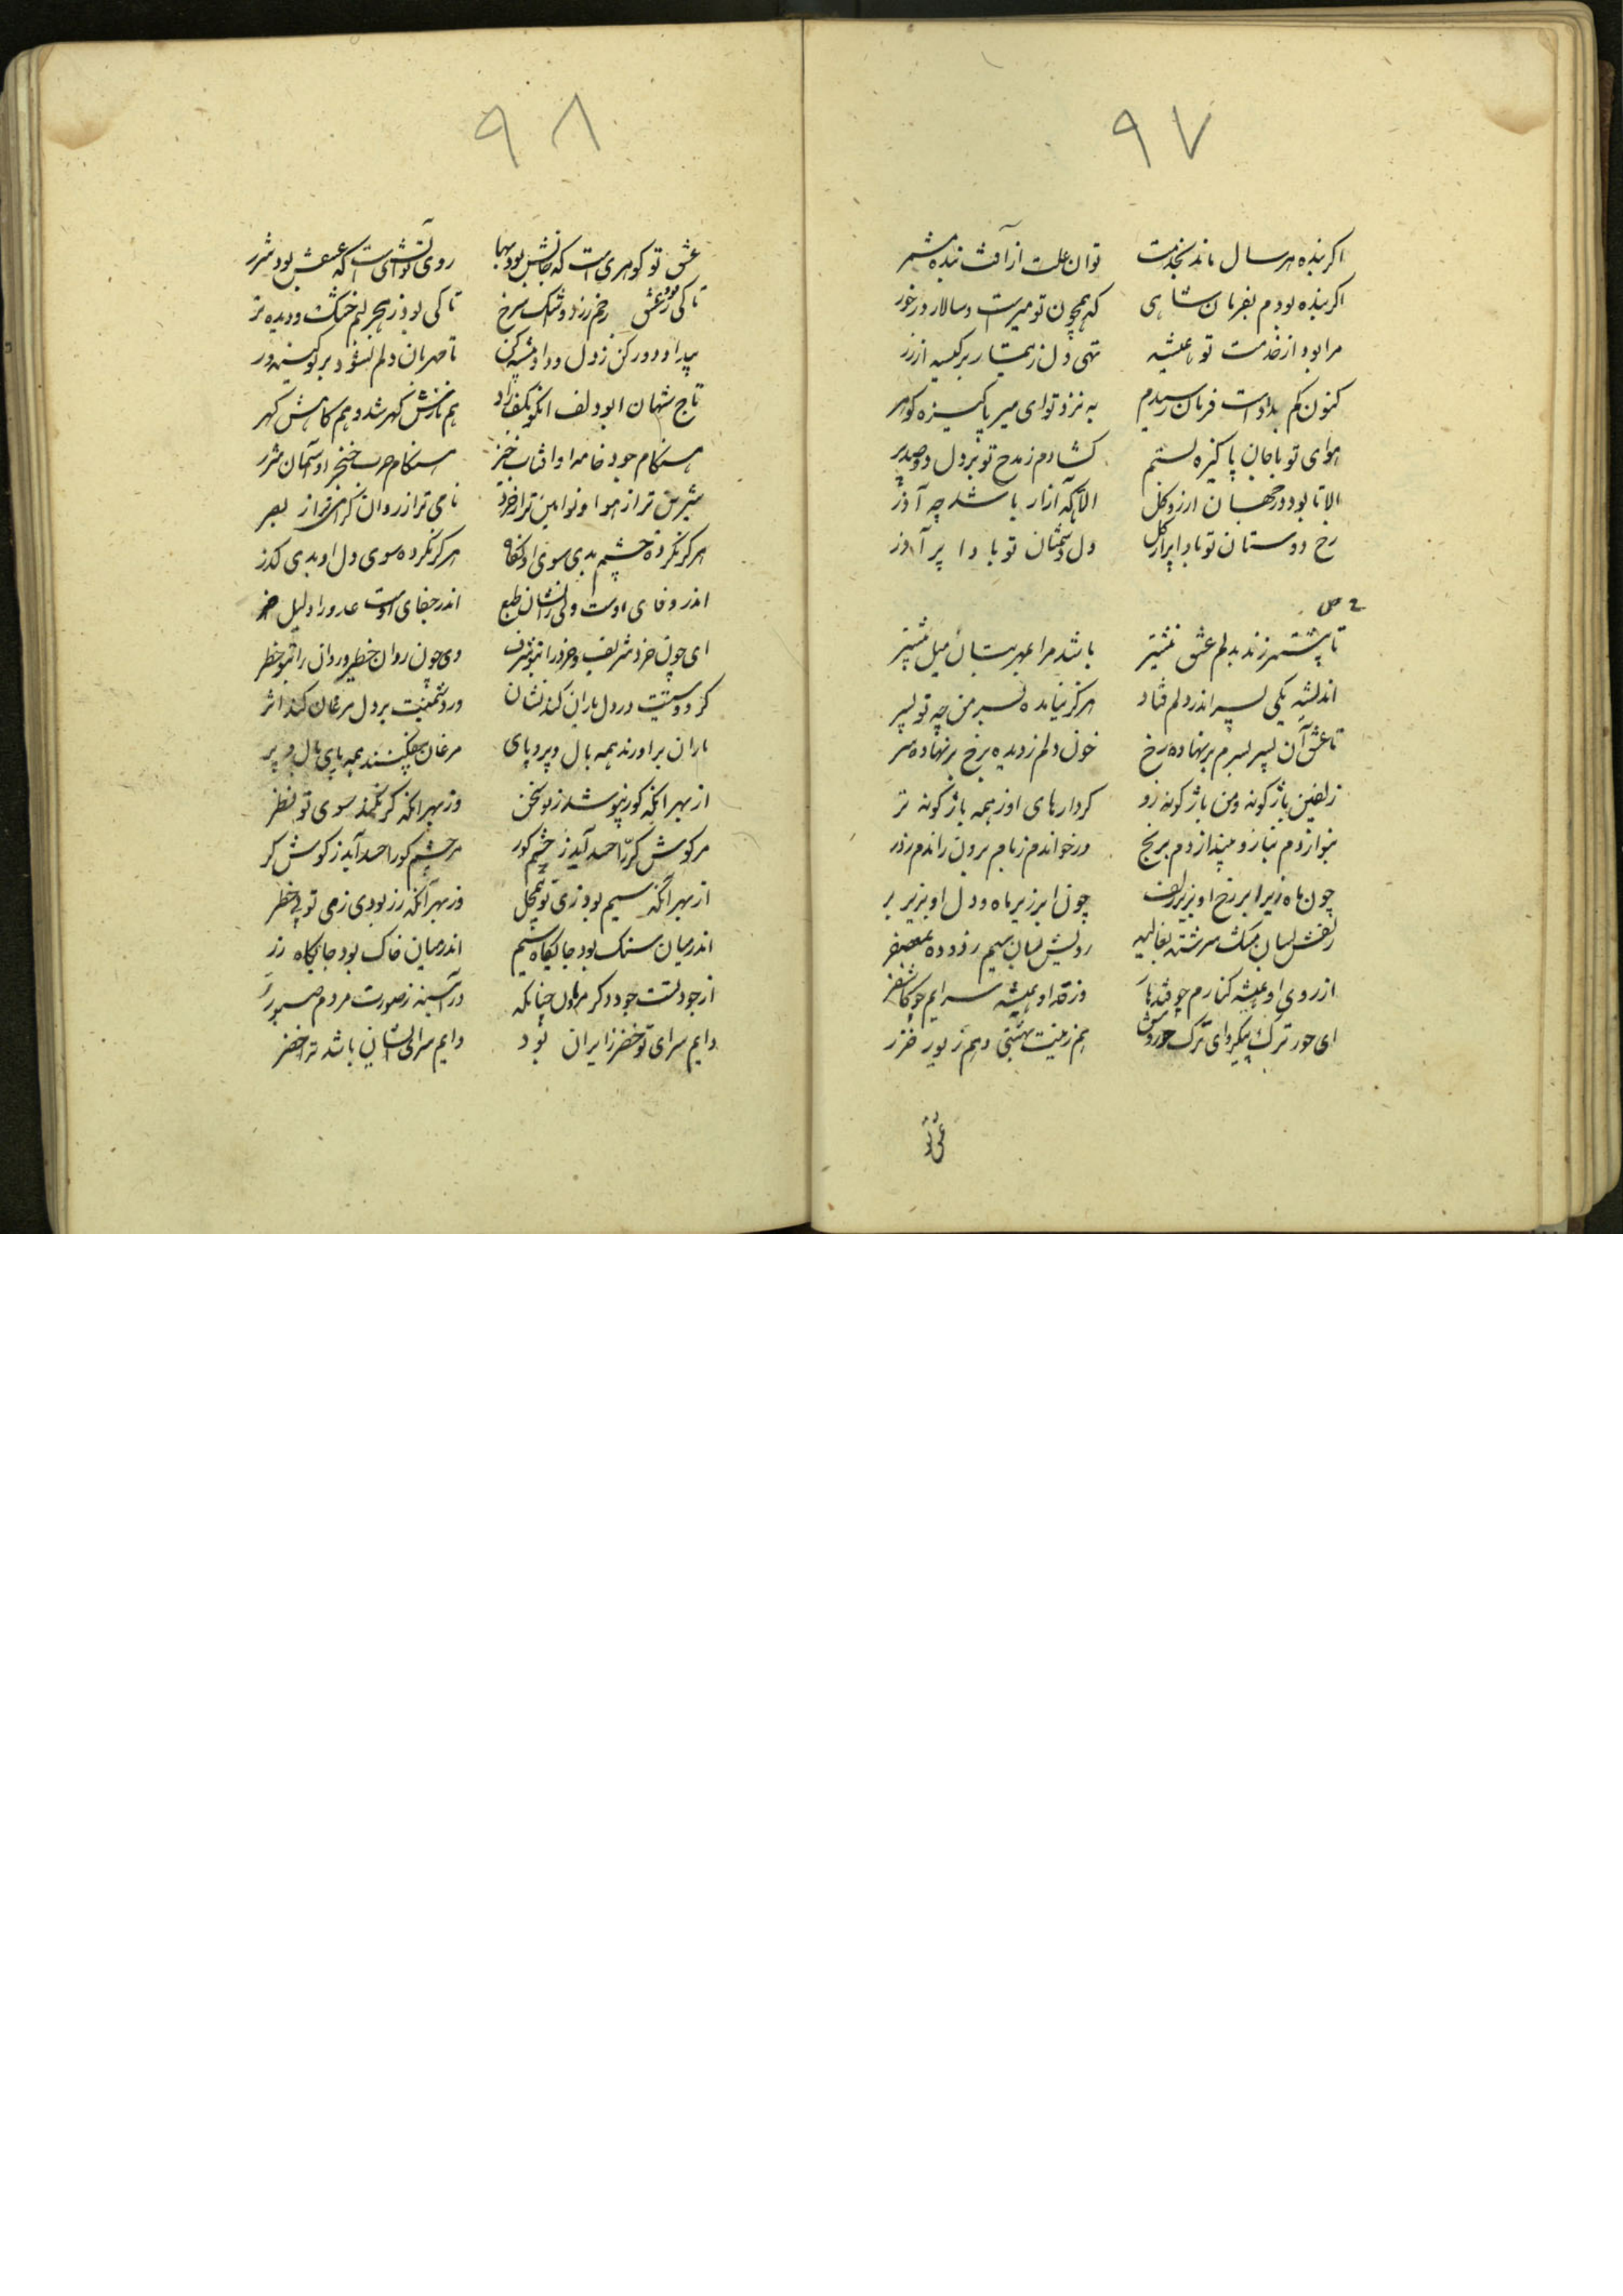 ٩٧
اگر بنده هر سال ماند بخدمت توان علت از آفت بنده مشمر
اگر بنده بودم بفرمان شاهی که همچون تو میرست و سالار در خور
مرا بود از خدمت تو همیشه تهی دل ز تیمار پر کیسه از زر
کنون کم بدادست فرمان رسیدم به نزد تو ای میر پاکیزه گوهر
هوای تو با جان پاکیزه بستم گشادم ز مدح تو بر دل دو صد در
الا تا بود در جهان ارز و گل الا تا که آزار باشد چه آذر
رخ دوستان تو بادا پر از گل دل دشمنان تو بادا پر آذر
تا بیشتر زند بدلم عشق نیشتر باشد مرا بمهر بتان میل بیشتر
اندیشه یکی پسر اندر دلم فتاد هرگز نیامده بسر من چه تو پسر
تا عشق آن پسر بسرم بر نهاده رخ خون دلم ز دیده برخ بر نهاده سر
زلفین باژگونه و من باژگونه رو کردارهای او ز همه باژگونه تر
بنوازدم بناز و بیندازدم برنج ور خواندم زبام برون راندم ز در
چون ماه زیر ابر رخ او بزیر زلف چون ابر زیر ماه و دل او بزیر بر
زلفش بسان مشک سرشته بغالیه رویش بسان سیم زدوده بمعصفر
از روی او همیشه کنارم چو قندهار وز قد او همیشه سرایم چو کاشغر
ای حور ترک پیکر و ای ترک حوروش هم زینت بهشتی و هم زیور خزر
عشق تو
٩٨
عشق تو گوهری است که جانش بود بها روی تو آتشی است که عشقش بود شرر
تا کی بود ز عشق رخم زرد و اشک سرخ تا کی بود ز هجر لبم خشک و دیده تر
بیداد دور کن ز دل و داد پیشه کن تا مهربان دلم نشود بر تو کینه ور
تاج شهان ابودلف آنکو بکف راد هم نازش گهر شد و هم کاهش گهر
هنگام جود خامه او آفتاب خیز هنگام حرب خنجر او آسمان شرر
شیرین تر از هوا و نوآیین تر از خرد نامی تر از روان گرامی تر از بصر
هرگز نکرده چشم بدی سوی او نگاه هرگز نکرده سوی دل او بدی گذر
اندر وفای اوست ولی را نشان طبع اندر جفای اوست عدو را دلیل ضر
ای چون خرد شریف و خرد را بتو شرف وی چون روان خطیر و روان را بتو خطر
گر دوستیت در دل ماران کند نشان ور دشمنیت بر دل مرغان کند اثر
ماران برآورند همه بال و پر و پای مرغان بیفکنند همه پای و بال و پر
از بهر آنکه کر نیوشد ز تو سخن وز بهر آنکه کور نکند سوی تو نظر
مر گوش کر را حسد آید ز چشم کور مر چشم کور را حسد آید ز گوش کر
از بهر آنکه سیم بود زی تو بی محل وز بهر آنکه زر بود زی تو بی خطر
اندر میان سنگ بود جایگاه سیم اندر میان خاک بود جایگاه زر
از جود تست جود دگر مردمان چنانکه در آینه ز صورت مردم صور
دایم سرای تو خضر زایران بود دایم سرای ایشان باشد ترا خضر